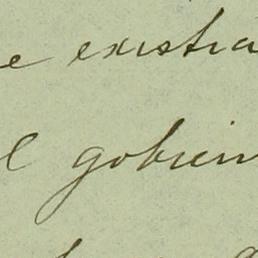 e existia
l gobien